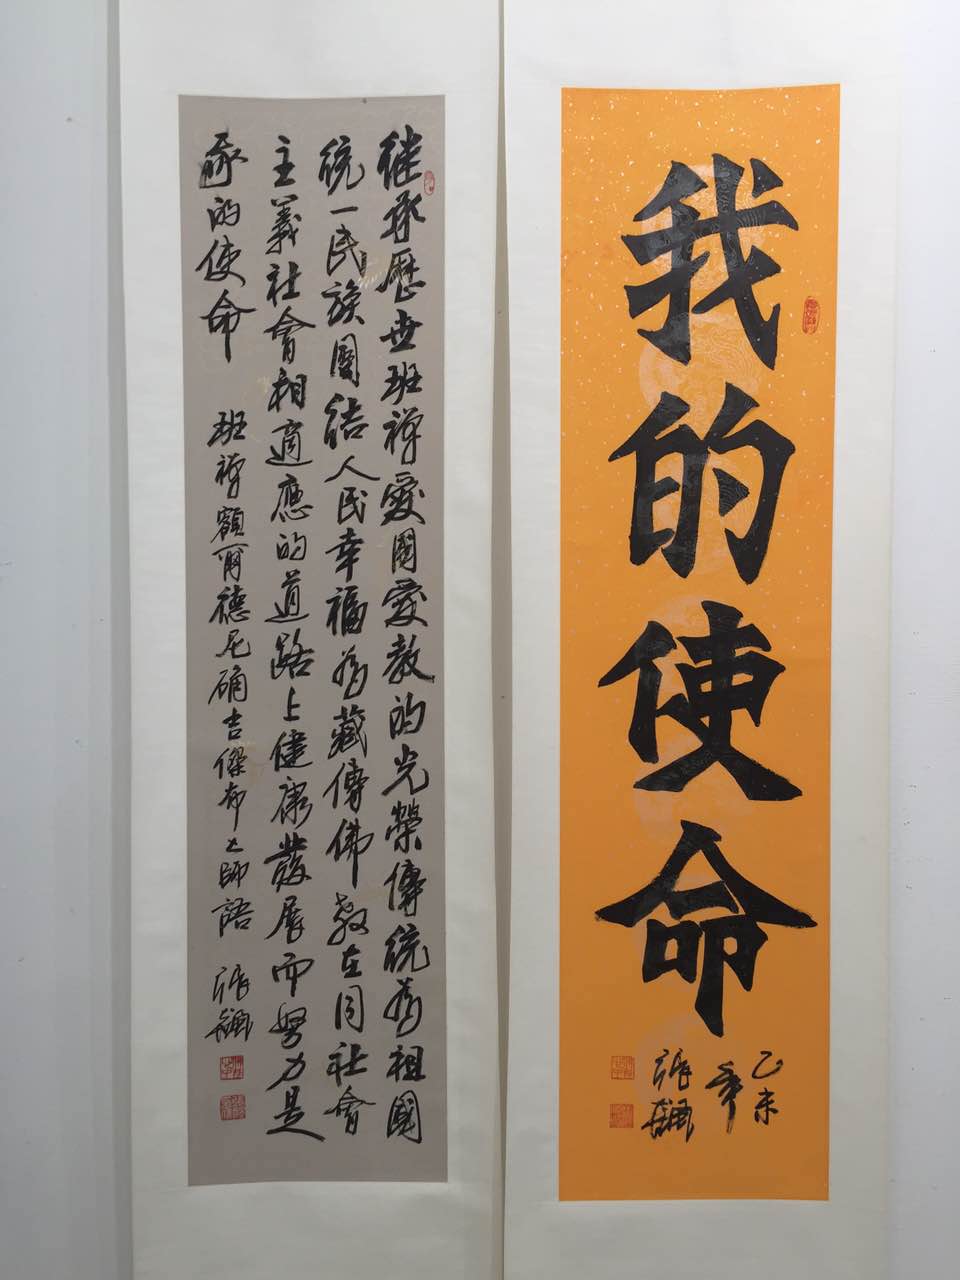 我的使命
乙未
年
張飆
继承歷世班禅愛國愛教的光榮傳統為祖國
統一民族團結人民幸福為藏傳佛教在同社會
主義社會相適應的道路上健康發展而努力是
我的使命 班禅額爾德尼确吉傑布大師語 張飆